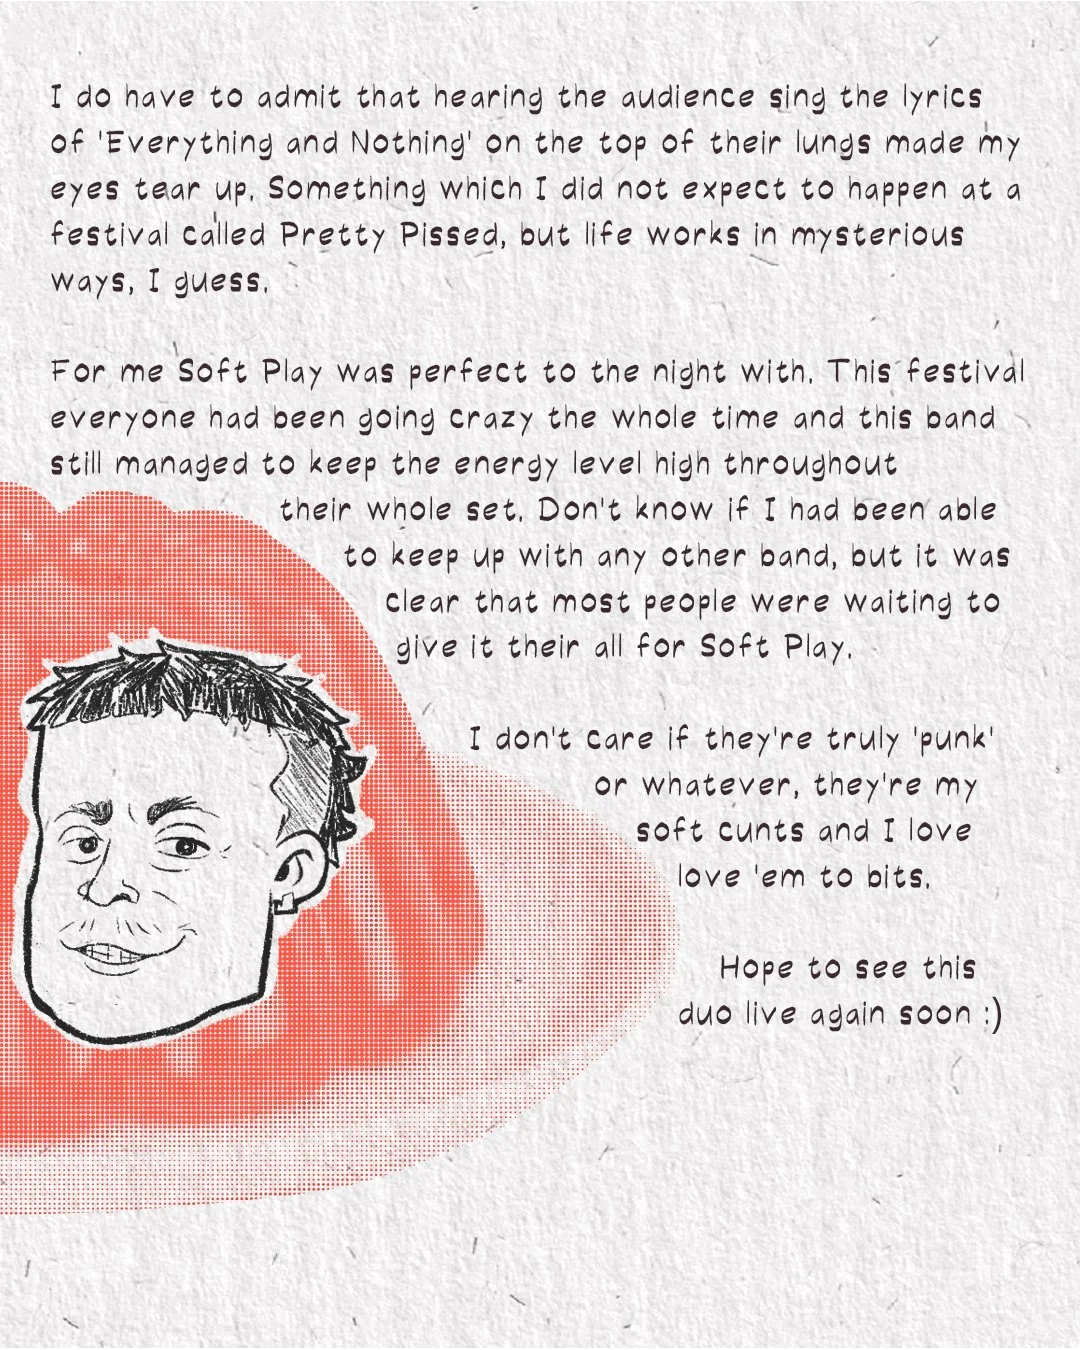 I do have to admit that hearing the audience sing the lyrics
of 'Everything and Nothing' on the top of their lungs made my
eyes tear up. Something which I did not expect to happen at a
festival called Pretty Pissed, but life works in mysterious
ways, I guess.
For me Soft Play was perfect to the night with. This festival
everyone had been going crazy the whole time and this band
still managed to keep the energy level high throughout
their whole set. Don't know if I had been able
to keep up with any other band, but it was
clear that most people were waiting to
give it their all for Soft Play.
I don't care if they're truly 'punk'
or whatever, they're my
soft cunts and I love
love 'em to bits.
Hope to see this
duo live again soon :)